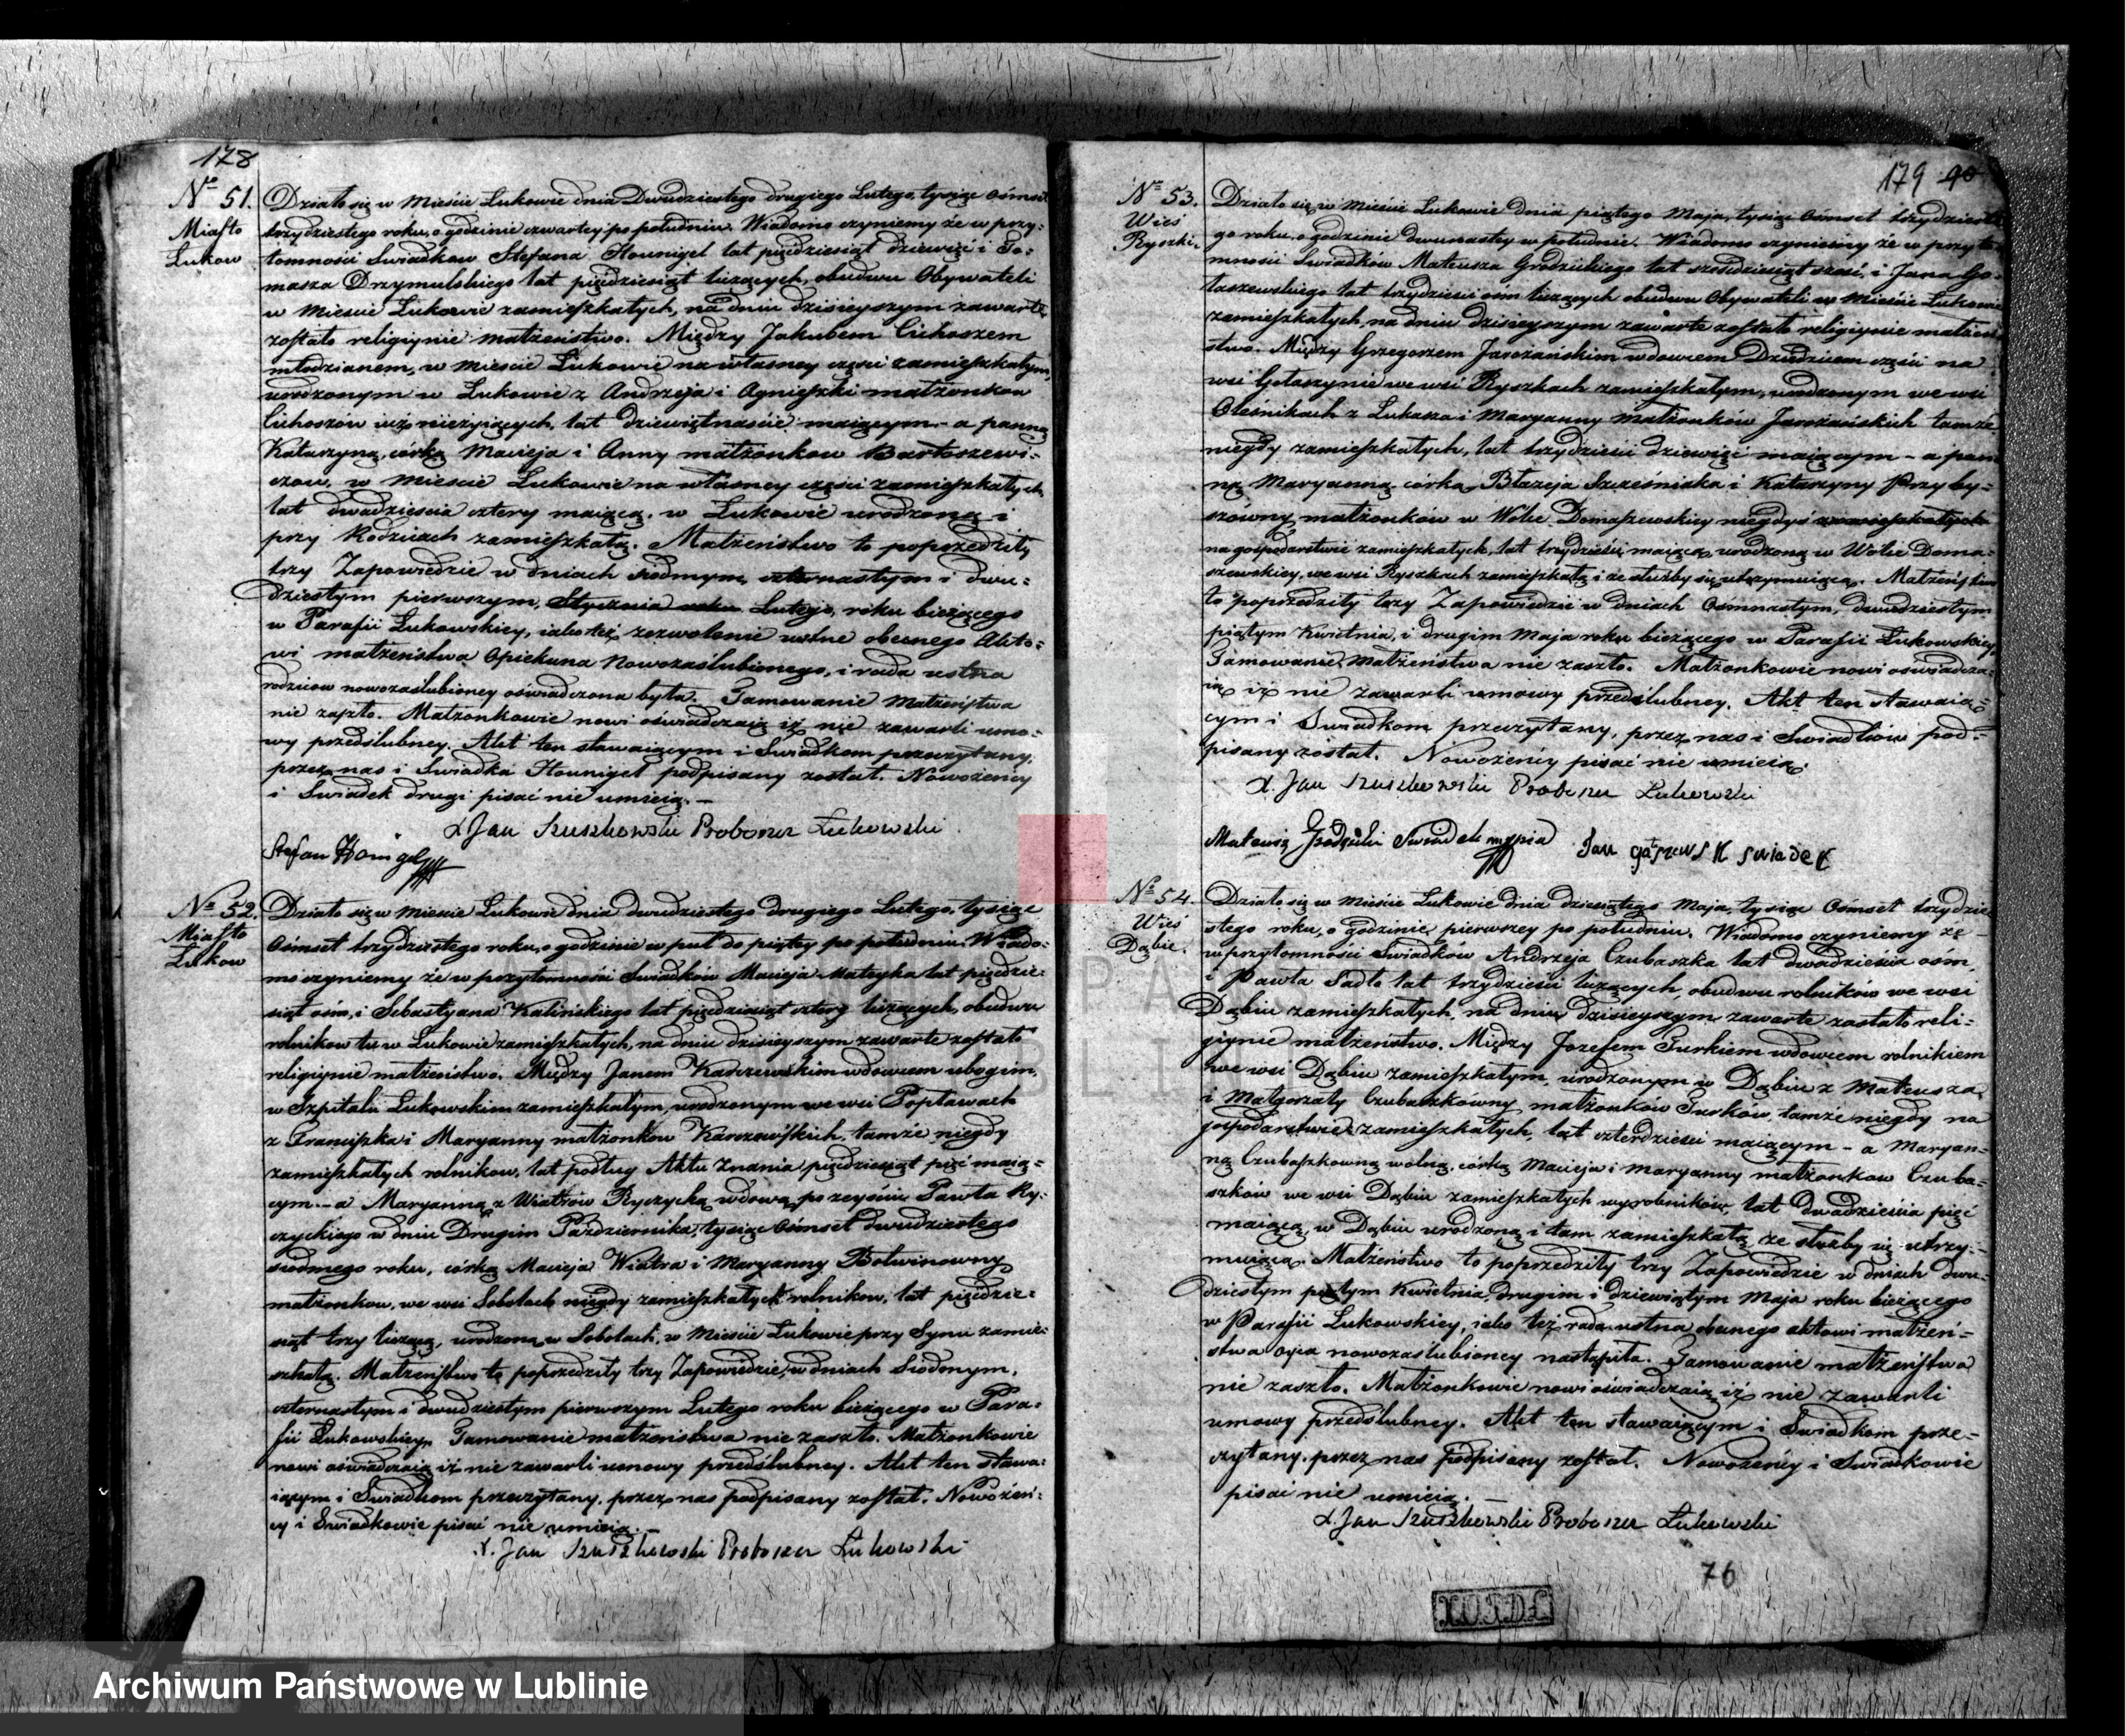 178
Nº 51.
Miasto
Lukow
Działo się w Mieście Łukowie dnia Dwudziestego drugiego Lutego, tysiąc ośmset
trzydziestego roku, o godzinie czwartey po południu. Wiadomo czyniemy że w przy-
tomności Swiadkow Stefana Hounigel lat pięćdziesiąt dziewięć i To-
masza Drzymulskiego lat pięćdziesiąt liczących, obudwu Obywateli
w Mieście Łukowie zamieszkałych, na dniu dzisieyszym zawarte
zostało religiynie małżeństwo. Między Jakubem Cichoszem
młodzianem, w Mieście Łukowie na własney części zamieszkałym,
urodzonym w Łukowie z Andrzeja i Agnieszki małżonkow
Cichoszów iuż nieżyiących, lat dziewiętnaście maiącym – a panną
Katarzyną, córką Macieja i Anny małżonkow Bartoszewi-
czow, w Mieście Łukowie na własney części zamieszkałych,
lat dwadzieścia cztery maiącą, w Łukowie urodzoną i
przy Rodzicach zamieszkałą. Małżeństwo to poprzedziły
trzy Zapowiedzie w dniach siodmym czternastym i dwu-
dziestym pierwszym, Stycznia roku Lutego, roku bieżącego
w Parafii Łukowskiey, iako też zezwolenie ustne obecnego Akto-
wi małżeństwa Opiekuna Nowozaślubionego, i rada ustna
rodzicow nowozaślubioney oświadczona była. Tamowanie Małżeństwa
nie zaszło. Małżonkowie nowi oświadczaią iż nie zawarli umo-
wy przedślubney. Akt ten stawaiącym i Swiadkom przeczytany,
przez nas i Swiadka Hounigel podpisany został. Nowożeńcy
i Swiadek drugi pisać nie umieią. –
X Jan Kuszkowski Proboszcz Łukowski
Stefan Honigel
Nº 52.
Miasto
Lukow
Działo się w Mieście Łukowie dnia dwudziestego drugiego Lutego, tysiąc
Ośmset trzydziestego roku, o godzinie w puł do piątey po południu. Wiado-
mo czyniemy że w przytomności Swiadków Macieja Mateyka lat pięćdzie-
siąt ośm, i Sebastyana Kalińskiego lat pięćdziesiąt cztery liczących, obudwu
rolnikow tu w Łukowie zamieszkałych, na dniu dzisieyszym zawarte zostało
religiynie małżeństwo. Między Janem Karczewskim wdowcem ubogim,
w Szpitalu Łukowskim zamieszkałym, urodzonym we wsi Popławach
z Franciszka i Maryanny małżonkow Karczewskich, tamże niegdy
zamieszkałych rolnikow, lat podług Aktu Znania pięćdziesiąt pięć maią-
cym – a Maryanną z Wiatrow Ryczycką wdową, po zeyściu Pawła Ry-
czyckiego w dniu Drugim Października, tysiąc Ośmset dwudziestego
siodmego roku, córką Macieja Wiatra i Maryanny Botwinowny
małżonkow, we wsi Sobolach niegdy zamieszkałych rolnikow, lat pięćdzie-
siąt trzy liczącą, urodzoną w Sobolach, w Mieście Łukowie przy Synu zamie-
szkałą. Małżeństwo to poprzedziły trzy Zapowiedzie, w dniach Siodmym,
czternastym i dwudziestym pierwszym Lutego roku bieżącego w Para-
fii Łukowskiey. Tamowanie małżeństwa nie zaszło. Małżonkowie
nowi oświadczaią iż nie zawarli umowy przedślubney. Akt ten stawa-
iącym i Swiadkom przeczytany, przez nas podpisany został. Nowożeń-
cy i Swiadkowie pisać nie umieią. –
X. Jan Kuszkowski Proboszcz Łukowski
179 90
Nº 53.
Wieś
Ryszki
Działo się w Mieście Łukowie dnia piątego Maja, tysiąc ośmset trzydzieste-
go roku, o godzinie dwunastey w południe. Wiadomo czyniemy że w przyto-
mności Swiadków Mateusza Grodzickiego lat sześćdziesiąt sześć, i Jana Go-
łaszewskiego lat trzydzieści ośm liczących obudwu Obywateli w Mieście Łukowie
zamieszkałych, na dniu dzisieyszym zawarte zostało religiynie małżeń-
stwo. Między Grzegorzem Jarożańskim wdowcem Dziedzicem części na
wsi Gołaszynie we wsi Ryszkach zamieszkałym, urodzonym we wsi
Oleśnikach z Łukasza i Maryanny Małżonków Jarożańskich tamże
niegdy zamieszkałych, lat trzydzieści dziewięć maiącym – a pan-
ną Maryanną córką Błażeja Szcześniaka i Katarzyny Przyby-
szówny małżonków w Wolce Domaszewskiey niegdyś zamieszkałych
na gospodarstwie zamieszkałych, lat trzydzieści maiącą, urodzoną w Wolce Doma-
szewskiey, we wsi Ryszkach zamieszkałą i ze służby się utrzymuiącą. Małżeństwo
to poprzedziły trzy Zapowiedzie w dniach Ośmnastym, dwudziestym
piątym Kwietnia, i drugim Maja roku bieżącego w Parafii Łukowskiey,
Tamowanie Małżeństwa nie zaszło. Małżonkowie nowi oświadcza-
ią iż nie zawarli umowy przedślubney. Akt ten stawaią-
cym i Swiadkom przeczytany, przez nas i Swiadków pod-
pisany został. Nowożeńcy pisać nie umieią.
X. Jan Kuszkowski Proboszcz Łukowski
Mateusz Grodzicki Swiadek Jan gałszewsk swiadek
Nº 54.
Wieś
Dąbie.
Działo się w Mieście Łukowie dnia dziesiątego Maja, tysiąc Ośmset trzydzie-
stego roku, o godzinie pierwszey po południu. Wiadomo czyniemy że
w przytomności Swiadków Andrzeja Czubaszka lat dwadzieścia ośm,
i Pawła Sadło lat trzydzieści liczących, obudwu rolników we wsi
Dąbiu zamieszkałych, na dniu dzisieyszym zawarte zostało reli-
giynie małżeństwo. Między Jozefem Turkiem wdowcem rolnikiem
we wsi Dąbiu zamieszkałym, urodzonym w Dąbiu z Mateusza
i Małgorzaty Czubaszkówny małżonków Turków, tamże niegdy na
gospodarstwie zamieszkałych, lat czterdzieści maiącym – a Maryan-
ną Czubaszkowną wolną, córką Macieja i Maryanny małżonkow Czuba-
szków we wsi Dąbiu zamieszkałych wyrobników, lat dwadzieścia pięć
maiącą, w Dąbiu urodzoną i tam zamieszkałą ze służby się utrzy-
muiącą. Małżeństwo to poprzedziły trzy Zapowiedzie w dniach dwu-
dziestym piątym Kwietnia, drugim i dziewiątym Maja roku bieżącego
w Parafii Łukowskiey, iako też rada ustna obecnego aktowi małżeń-
stwa oyca nowozaślubioney nastąpiła. Tamowanie małżeństwa
nie zaszło. Małżonkowie nowi oświadczaią iż nie zawarli
umowy przedślubney. Akt ten stawaiącym i Swiadkom prze-
czytany, przez nas podpisany został. Nowożeńcy i Swiadkowie
pisać nie umieią. –
X. Jan Kuszkowski Proboszcz Łukowski
76
Archiwum Państwowe w Lublinie